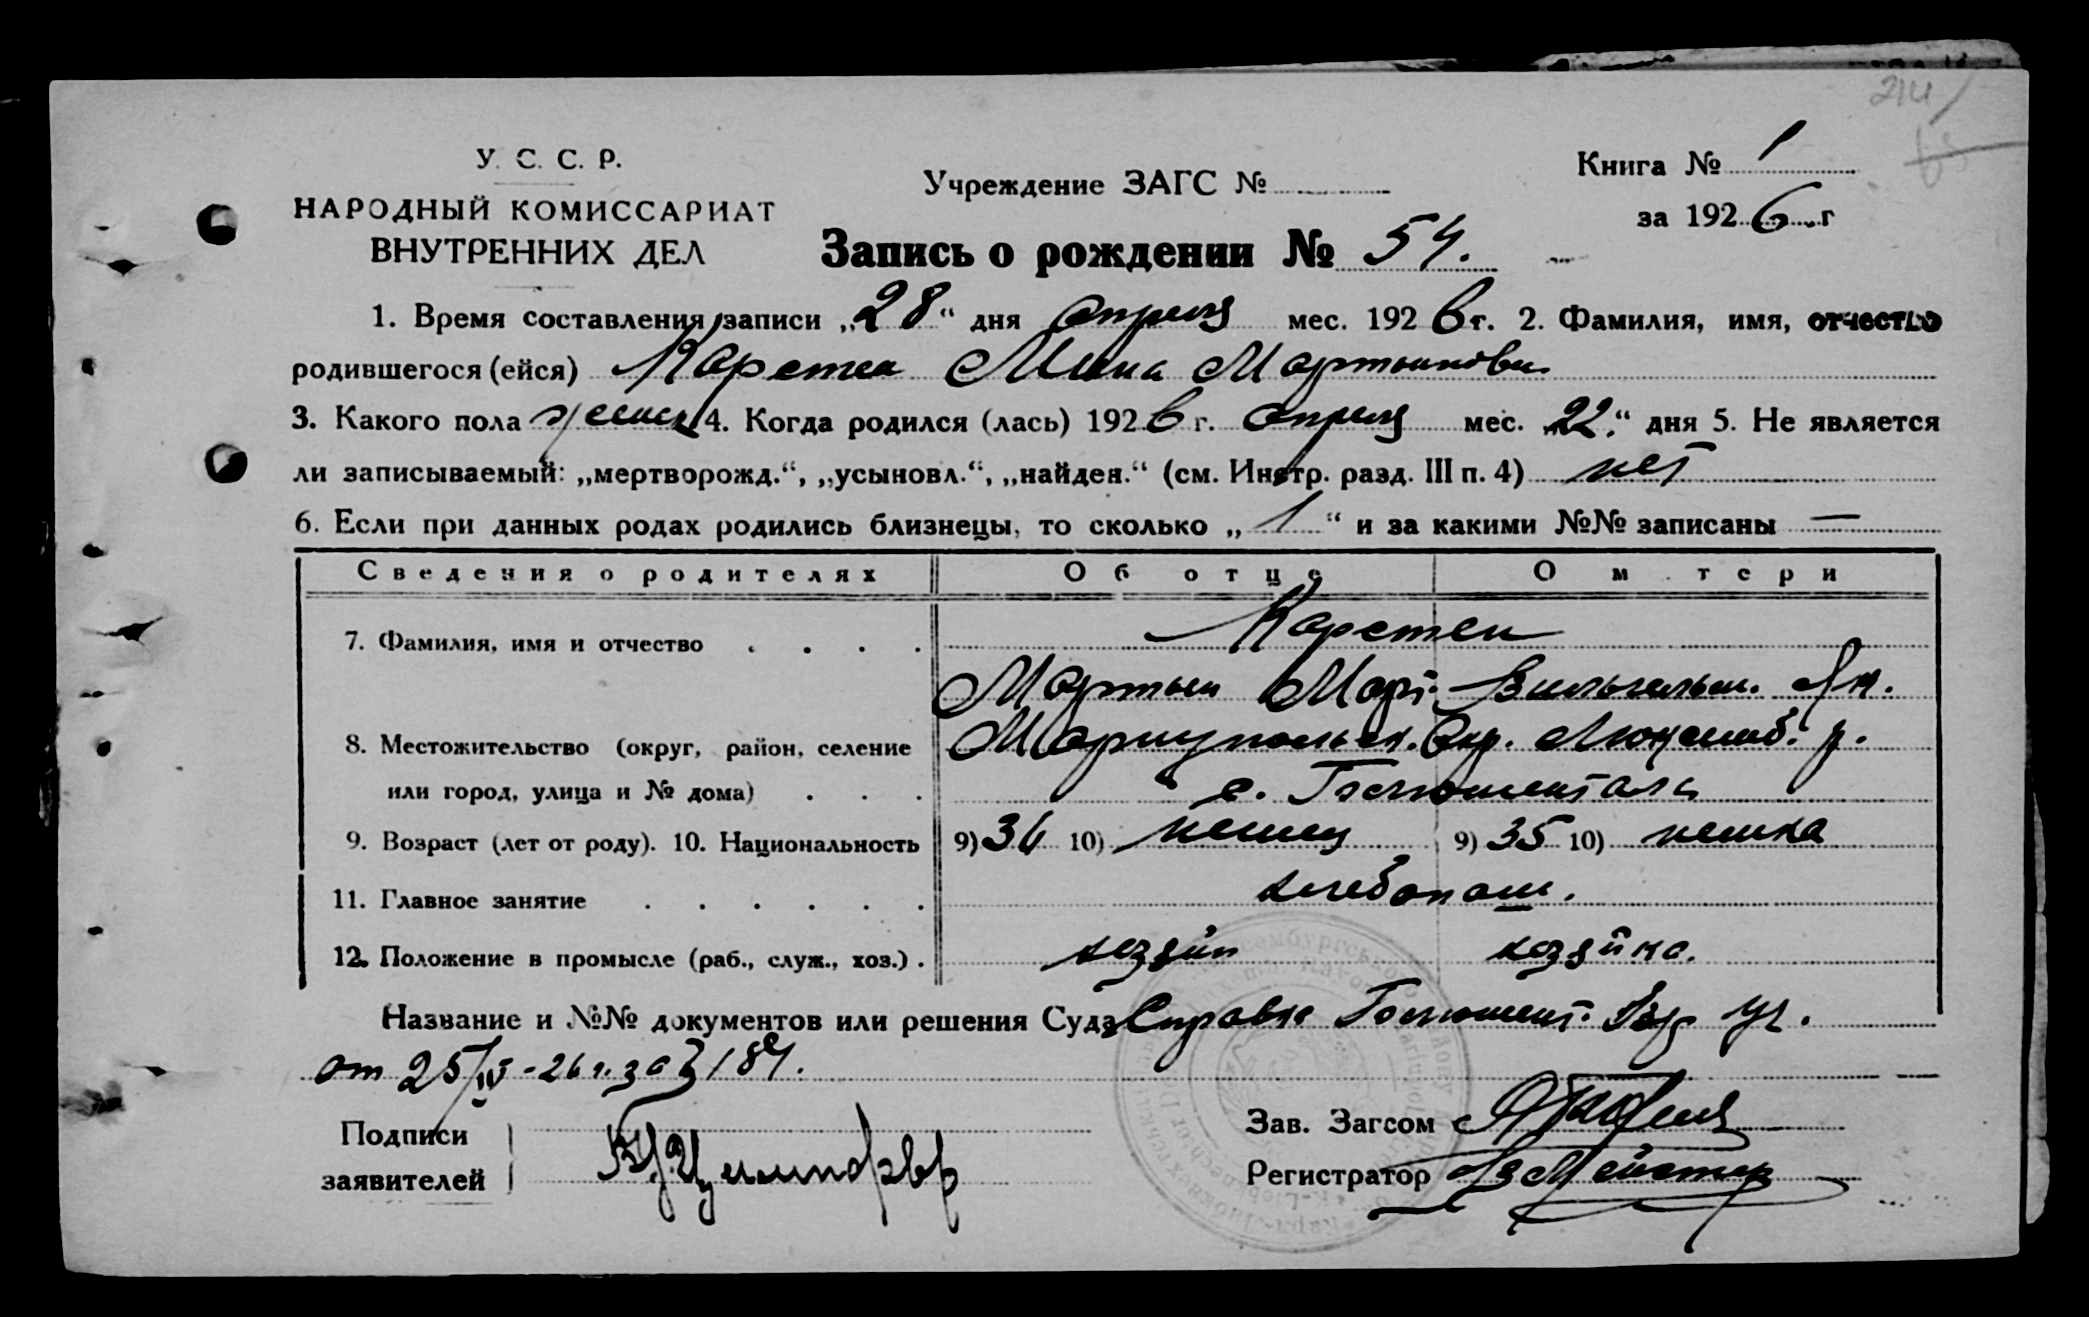 214
У. С. С. Р.
НАРОДНЫЙ КОМИССАРИАТ
ВНУТРЕННИХ ДЕЛ
Учреждение ЗАГС №
Книга № 1
за 1926 г
Запись о рождении № 54.
1. Время составления записи „28“ дня апреля мес. 1926 г. 2. Фамилия, имя, отчество
родившегося (ейся) Карстен Мина Мартынова
3. Какого пола женск 4. Когда родился (лась) 1926 г. апреля мес. „22.“ дня 5. Не является
ли записываемый: „мертворожд.“, „усыновл.“, „найден.“ (см. Инстр. разд. III п. 4) нет
6. Если при данных родах родились близнецы, то сколько „1“ и за какими №№ записаны —
Сведения о родителях Об отце О м тери
7. Фамилия, имя и отчество . . . . Карстен
Мартын Март. Вильгельм. Як.
8. Местожительство (округ, район, селение Мариупольск. Окр. Люксемб. р.
или город, улица и № дома) . . . с.
9. Возраст (лет от роду). 10. Национальность 9) 36 10) немец 9) 35 10) немка
11. Главное занятие . . . . . . хлебопаш.
12. Положение в промысле (раб., служ., хоз.) . хозяин хозяйка.
Название и №№ документов или решения Суда Справка
от 25/IV-26 г. за № 184.
Подписи
заявителей
Зав. Загсом
Регистратор